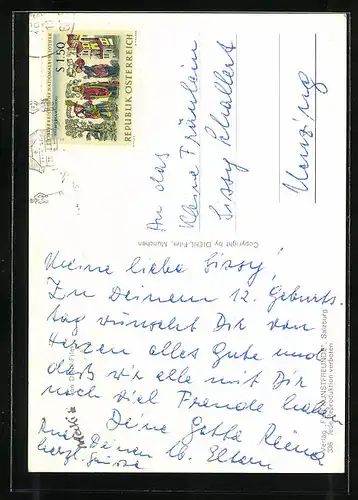 S 1.50
REPUBLIK ÖSTERREICH
ÖSTERREICHISCHE NATIONALBIBLIOTHEK
An das
kleine Fräulein
Sissy
Copyright by DIEHL-Film, München
Meine liebe Sissy!
Zu Deinem 12. Geburts-
tag wünscht Dir von
Herzen alles Gute und
daß wir alle mit Dir
noch viel Freude haben
Deine Gotta
Deinen lb. Eltern
herzl. Grüsse
Verlag „ , Salzburg
336 Jede Reproduktion verboten